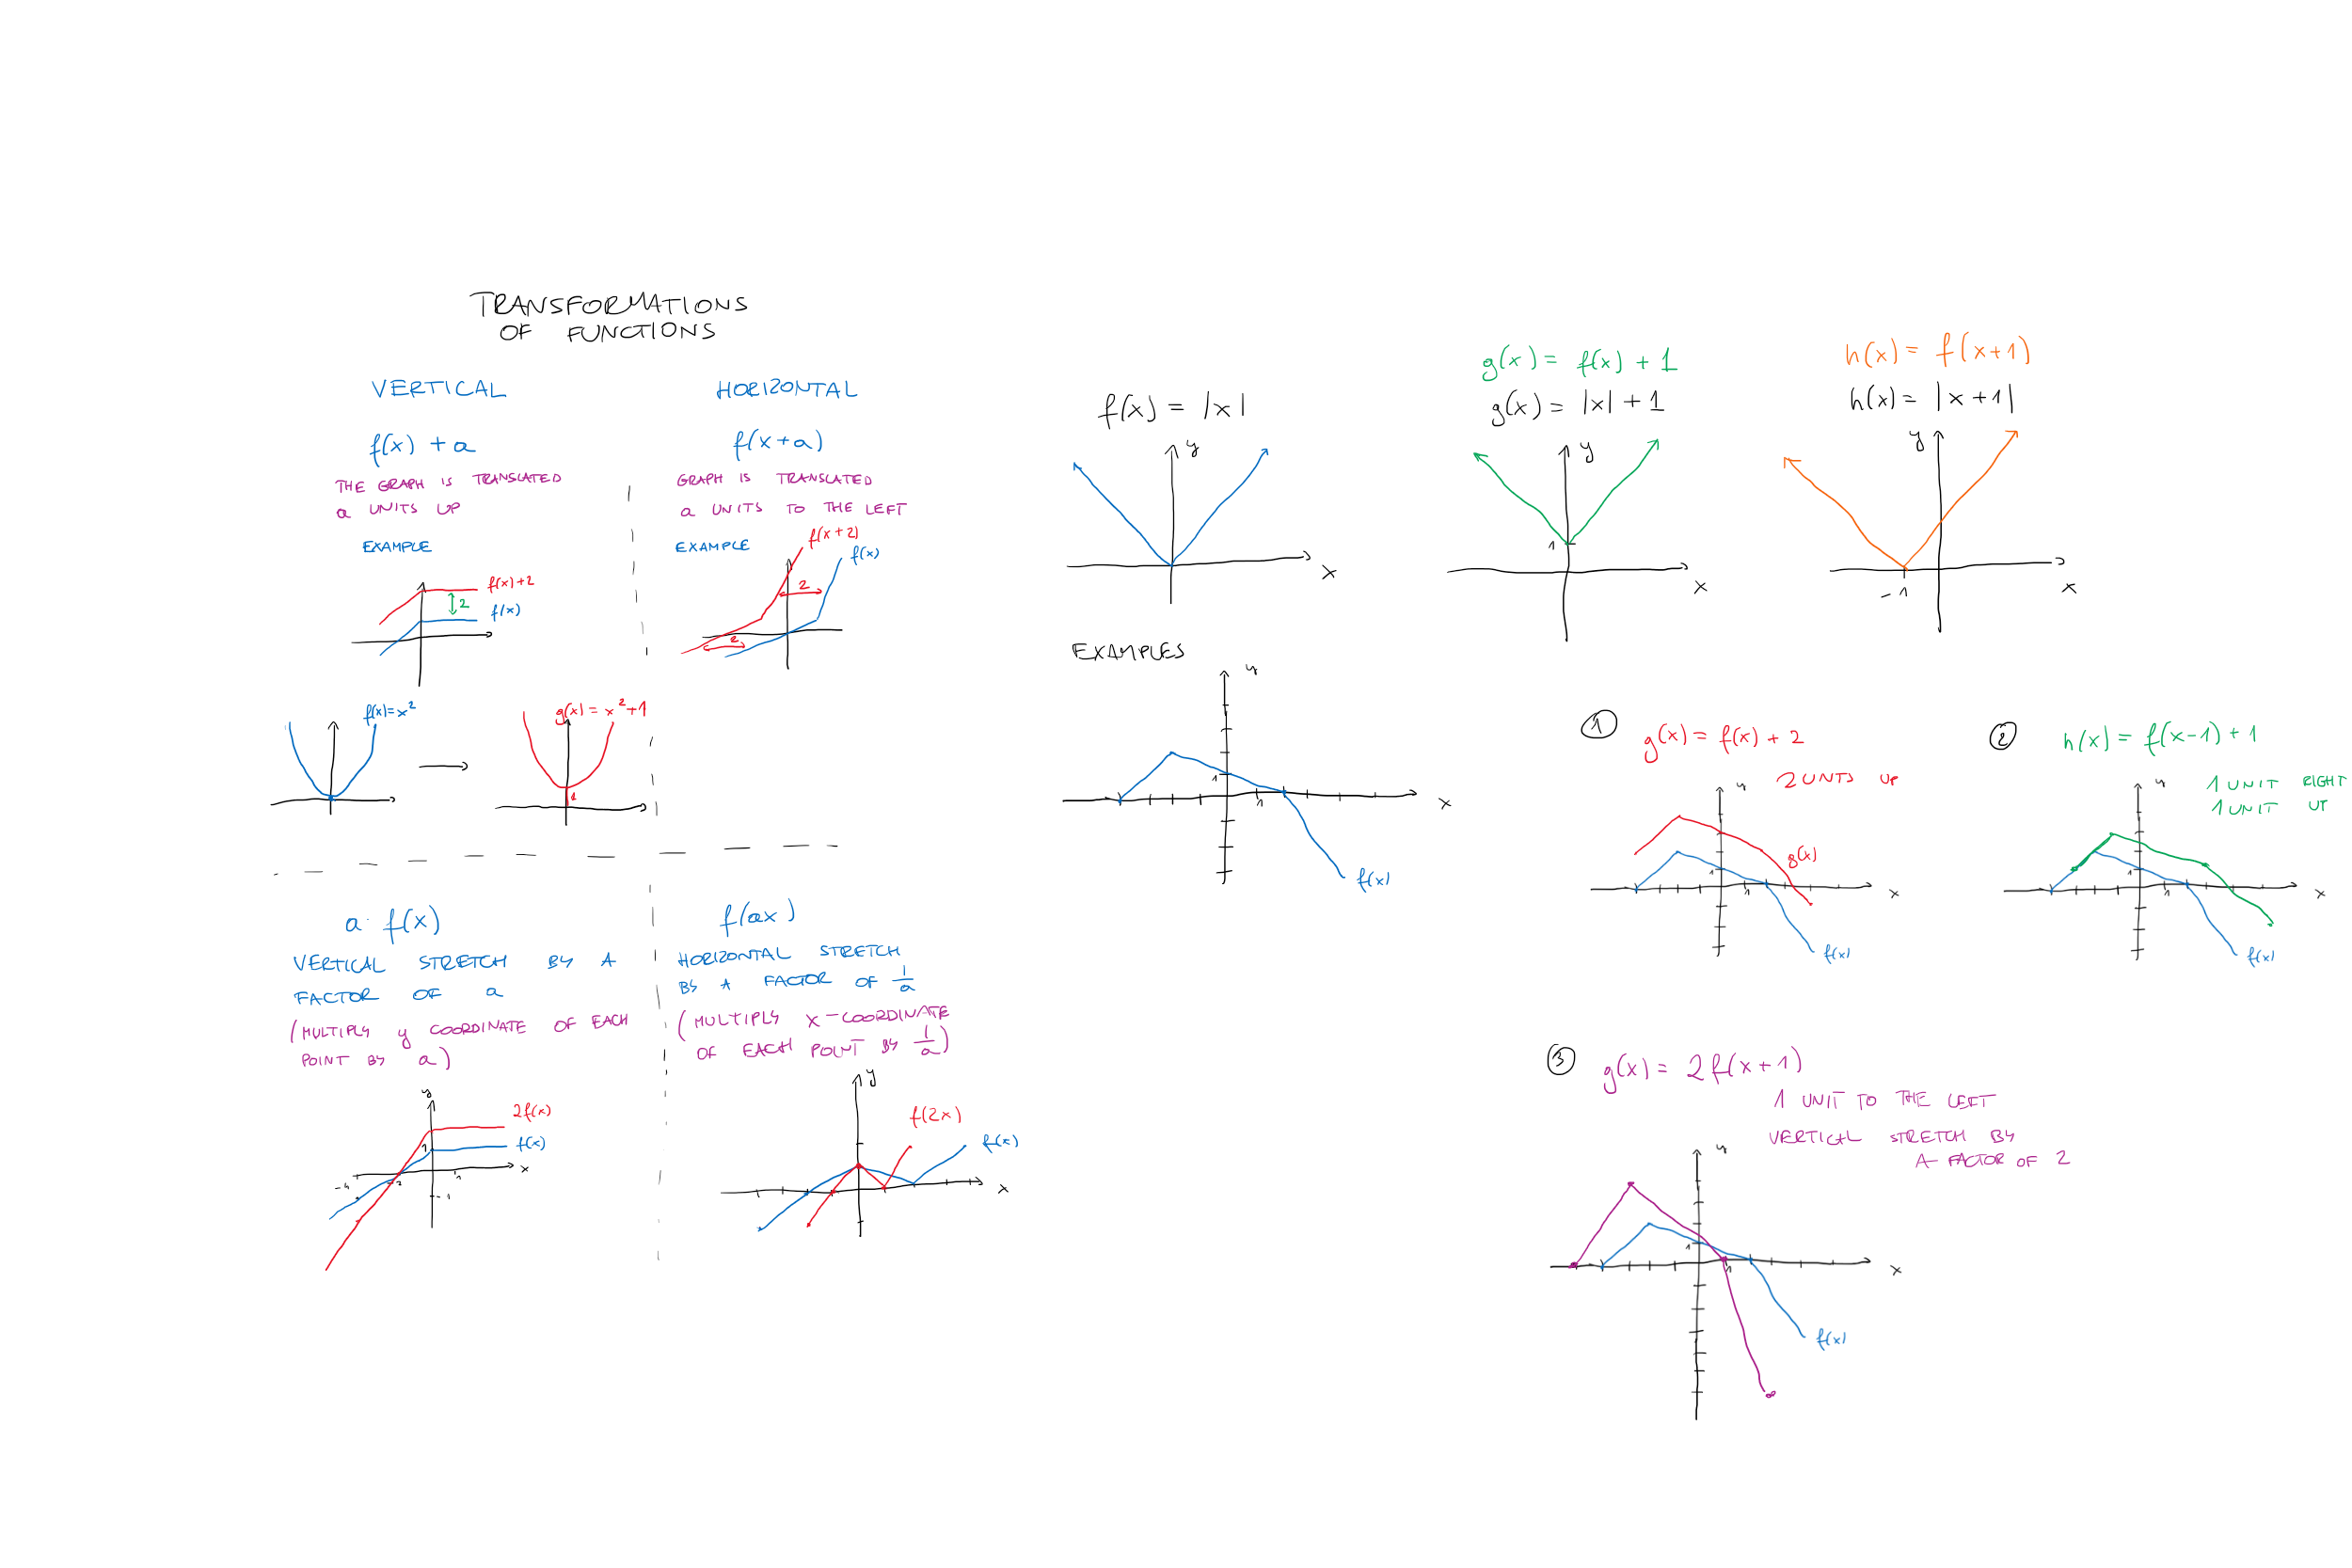 TRANSFORMATIONS
OF FUNCTIONS
VERTICAL
f(x) + a
THE GRAPH IS TRANSLATED
a UNITS UP
EXAMPLE
f(x)+2
2
f(x)
f(x)=x²
g(x) = x²+1
1
HORIZONTAL
f(x+a)
GRAPH IS TRANSLATED
a UNITS TO THE LEFT
EXAMPLE
f(x+2)
f(x)
2
2
a · f(x)
VERTICAL STRETCH BY A
FACTOR OF a
(MULTIPLY y COORDINATE OF EACH
POINT BY a)
y
2f(x)
f(x)
1
x
-4
-2
1
-1
f(ax)
HORIZONTAL STRETCH
BY A FACTOR OF 1/a
(MULTIPLY x-COORDINATE
OF EACH POINT BY 1/a)
y
f(2x)
f(x)
x
f(x) = |x|
y
x
g(x) = f(x) + 1
g(x) = |x| + 1
y
1
x
h(x) = f(x+1)
h(x) = |x+1|
y
-1
x
EXAMPLES
y
1
1
x
f(x)
1
g(x) = f(x) + 2
2 UNTS UP
y
g(x)
1
1
x
f(x)
2
h(x) = f(x-1) + 1
1 UNIT RIGHT
1 UNIT UP
y
1
1
x
f(x)
3
g(x) = 2f(x+1)
1 UNIT TO THE LEFT
VERTICAL STRETCH BY
A FACTOR OF 2
y
1
1
x
f(x)